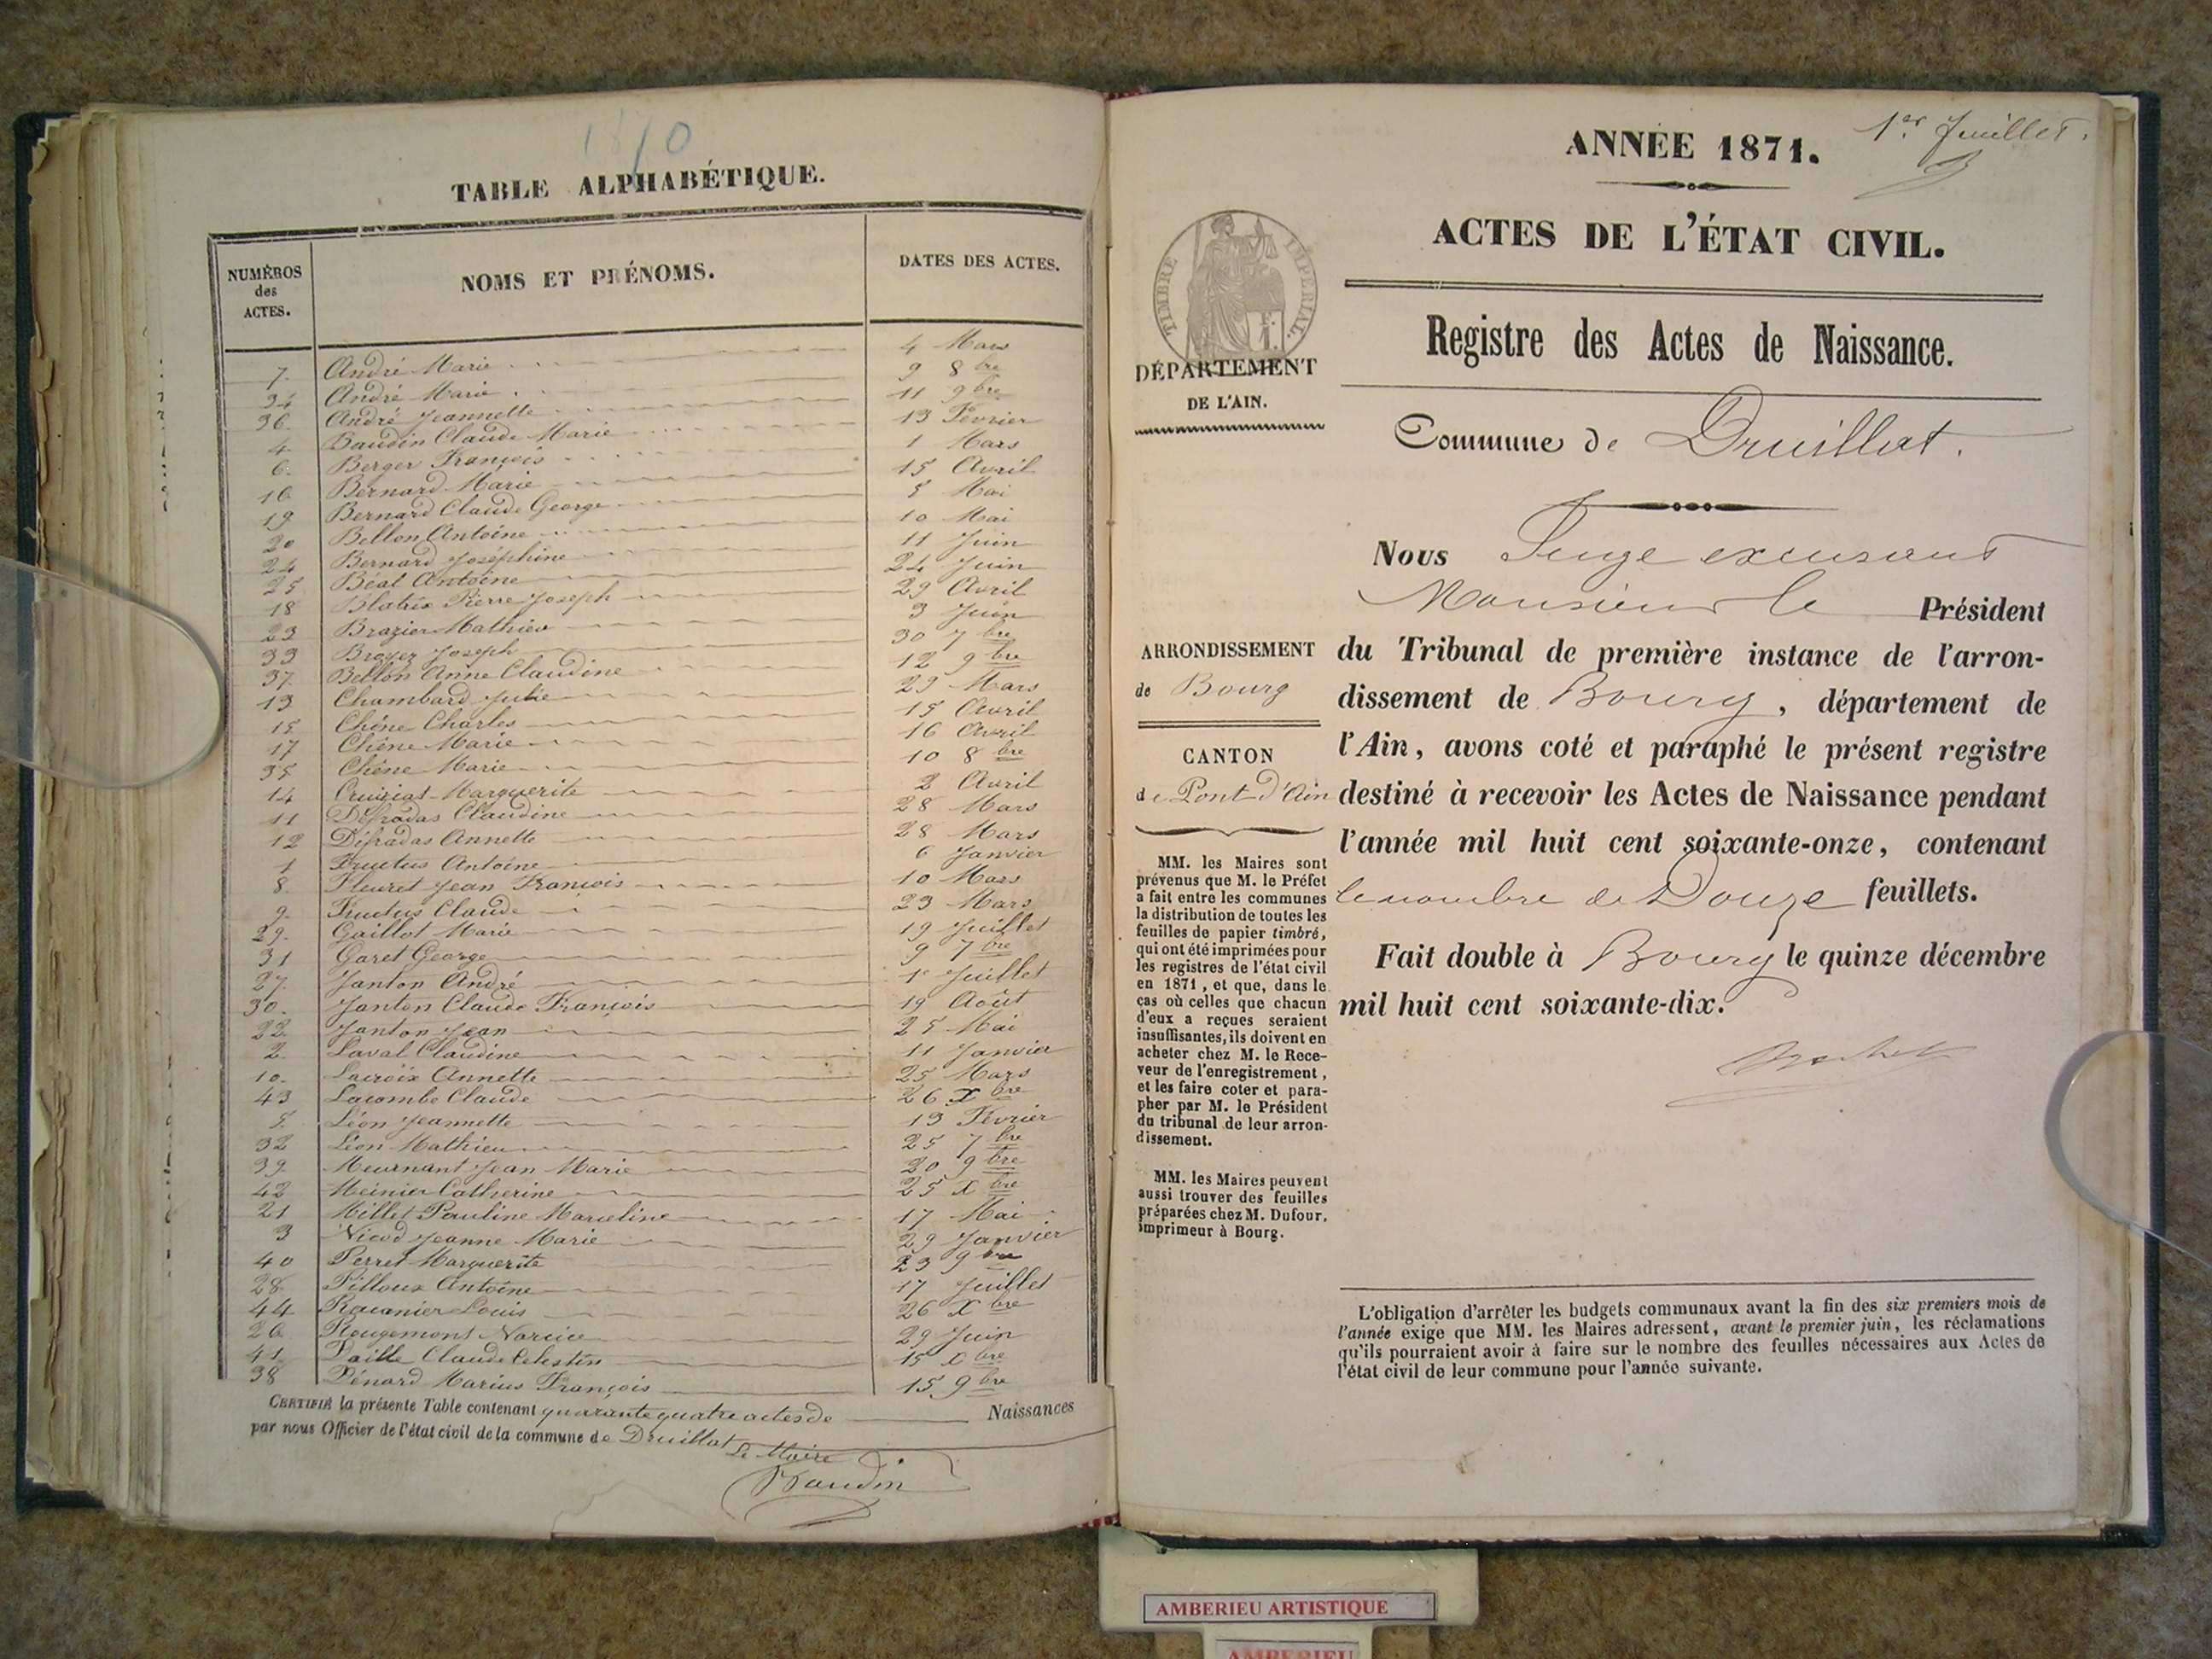 1870
TABLE ALPHABÉTIQUE.
NUMÉROS des ACTES. NOMS ET PRÉNOMS. DATES DES ACTES.
7. André Marie 4 Mars
34 André Marie 9 8bre
36. André Jeannette 11 9bre
4. Baudin Claude Marie 13 Février
6. Berger François 1 Mars
16 Bernard Marie 15 Avril
19 Bernard Claude George 5 Mai
20 Bellon Antoine 10 Mai
24 Bernard Joséphine 11 Juin
25 Béal Antoine 24 Juin
18 Blatrix Pierre Joseph 29 Avril
23 Brazier Mathieu 3 Juin
33 Broyer Joseph 30 7bre
37. Bellon Anne Claudine 12 9bre
13 Chambard Julie 29 Mars
15 Chêne Charles 15 Avril
17 Chêne Marie 16 Avril
35 Chêne Marie 10 8bre
14 Cruiziat Marguerite 2 Avril
11 Défradas Claudine 28 Mars
12 Défradas Annette 28 Mars
1 Fructus Antoine 6 Janvier
8. Fleuret Jean François 10 Mars
9. Fructus Claude 23 Mars
29. Gaillot Marie 19 Juillet
31 Garet George 9 7bre
27. Janton André 1r Juillet
30. Janton Claude François 19 Août
22. Janton Jean 25 Mai
2. Laval Claudine 11 Janvier
10. Lacroix Annette 25 Mars
43 Lacombe Claude 26 Xbre
5. Léon Jeannette 13 Février
32 Léon Mathieu 25 7bre
39. Meurnant Jean Marie 20 9bre
42 Meinier Catherine 25 Xbre
21 Millet Pauline Marceline 17 Mai
3 Nicod Jeanne Marie 29 Janvier
40 Perret Marguerite 23 9bre
28. Pilloux Antoine 17 Juillet
44 Racanier Louis 26 Xbre
26 Rougemont Narcice 29 Juin
41. Vaille Claude Celestin 15 Xbre
38 Pénard Marius François 15 9bre
CERTIFIÉ la présente Table contenant quarante quatre actes de Naissances
par nous Officier de l'état civil de la commune de Druillat
Le Maire
Baudin
1er Juillet.
ANNÉE 1871.
ACTES DE L'ÉTAT CIVIL.
TIMBRE IMPÉRIAL.
Registre des Actes de Naissance.
DÉPARTEMENT
DE L'AIN.
Commune de Druillat.
Nous Juge excusant
Monsieur le Président
ARRONDISSEMENT
de Bourg
CANTON
de Pont d'Ain
du Tribunal de première instance de l'arron-
dissement de Bourg, département de
l'Ain, avons coté et paraphé le présent registre
destiné à recevoir les Actes de Naissance pendant
l'année mil huit cent soixante-onze, contenant
le nombre de Douze feuillets.
Fait double à Bourg le quinze décembre
mil huit cent soixante-dix.
MM. les Maires sont
prévenus que M. le Préfet
a fait entre les communes
la distribution de toutes les
feuilles de papier timbré,
qui ont été imprimées pour
les registres de l'état civil
en 1871, et que, dans le
cas où celles que chacun
d'eux a reçues seraient
insuffisantes, ils doivent en
acheter chez M. le Rece-
veur de l'enregistrement,
et les faire coter et para-
pher par M. le Président
du tribunal de leur arron-
dissement.
MM. les Maires peuvent
aussi trouver des feuilles
préparées chez M. Dufour,
imprimeur à Bourg.
L'obligation d'arrêter les budgets communaux avant la fin des six premiers mois de
l'année exige que MM. les Maires adressent, avant le premier juin, les réclamations
qu'ils pourraient avoir à faire sur le nombre des feuilles nécessaires aux Actes de
l'état civil de leur commune pour l'année suivante.
AMBERIEU ARTISTIQUE
AMBERIEU